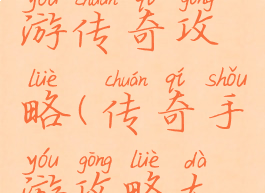 yóu chuán qí gōng
游传奇攻
lüè chuán qí shǒu
略(传奇手
yóu gōng lüè dà
游攻略大